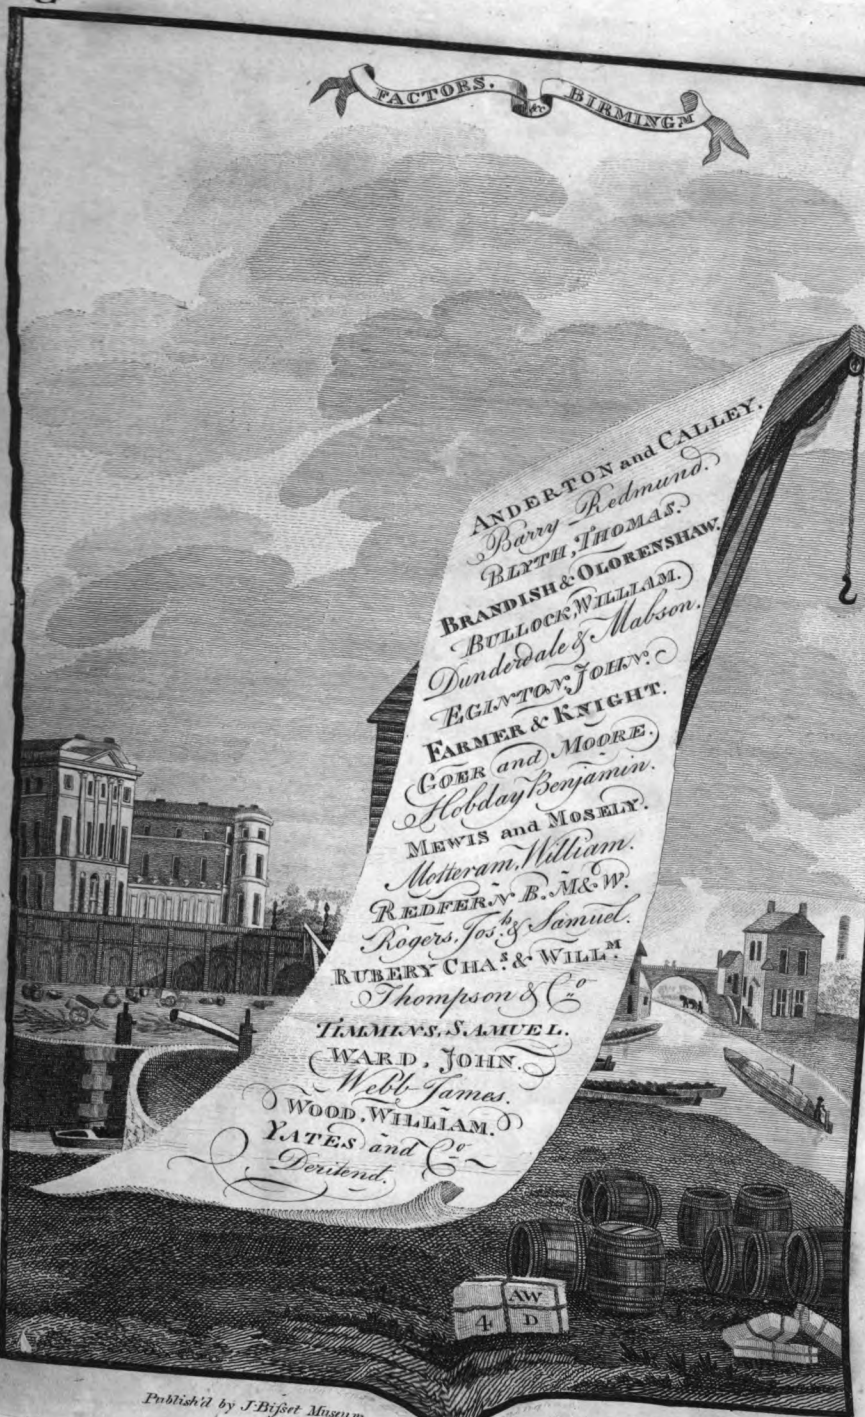 FACTORS. &c. BIRMINGM
ANDERTON and CALLEY.
Barry Redmund.
BLYTH, THOMAS.
BRANDISH & OLORENSHAW.
BULLOCK, WILLIAM.
Dunderdale & Mabson.
EGINTON, JOHN.
FARMER & KNIGHT.
GOER and MOORE.
Hobday Benjamin.
MEWIS and MOSELY.
Motteram, William.
REDFERN B. M & W.
Rogers, Josh. & Samuel.
RUBERY CHAS. & WILLM.
Thompson & Co
TIMMINS, SAMUEL.
WARD, JOHN.
Webb James.
WOOD, WILLIAM.
YATES and Co
Deritend.
AW
4 D
Publish'd by J. Bisset Museum